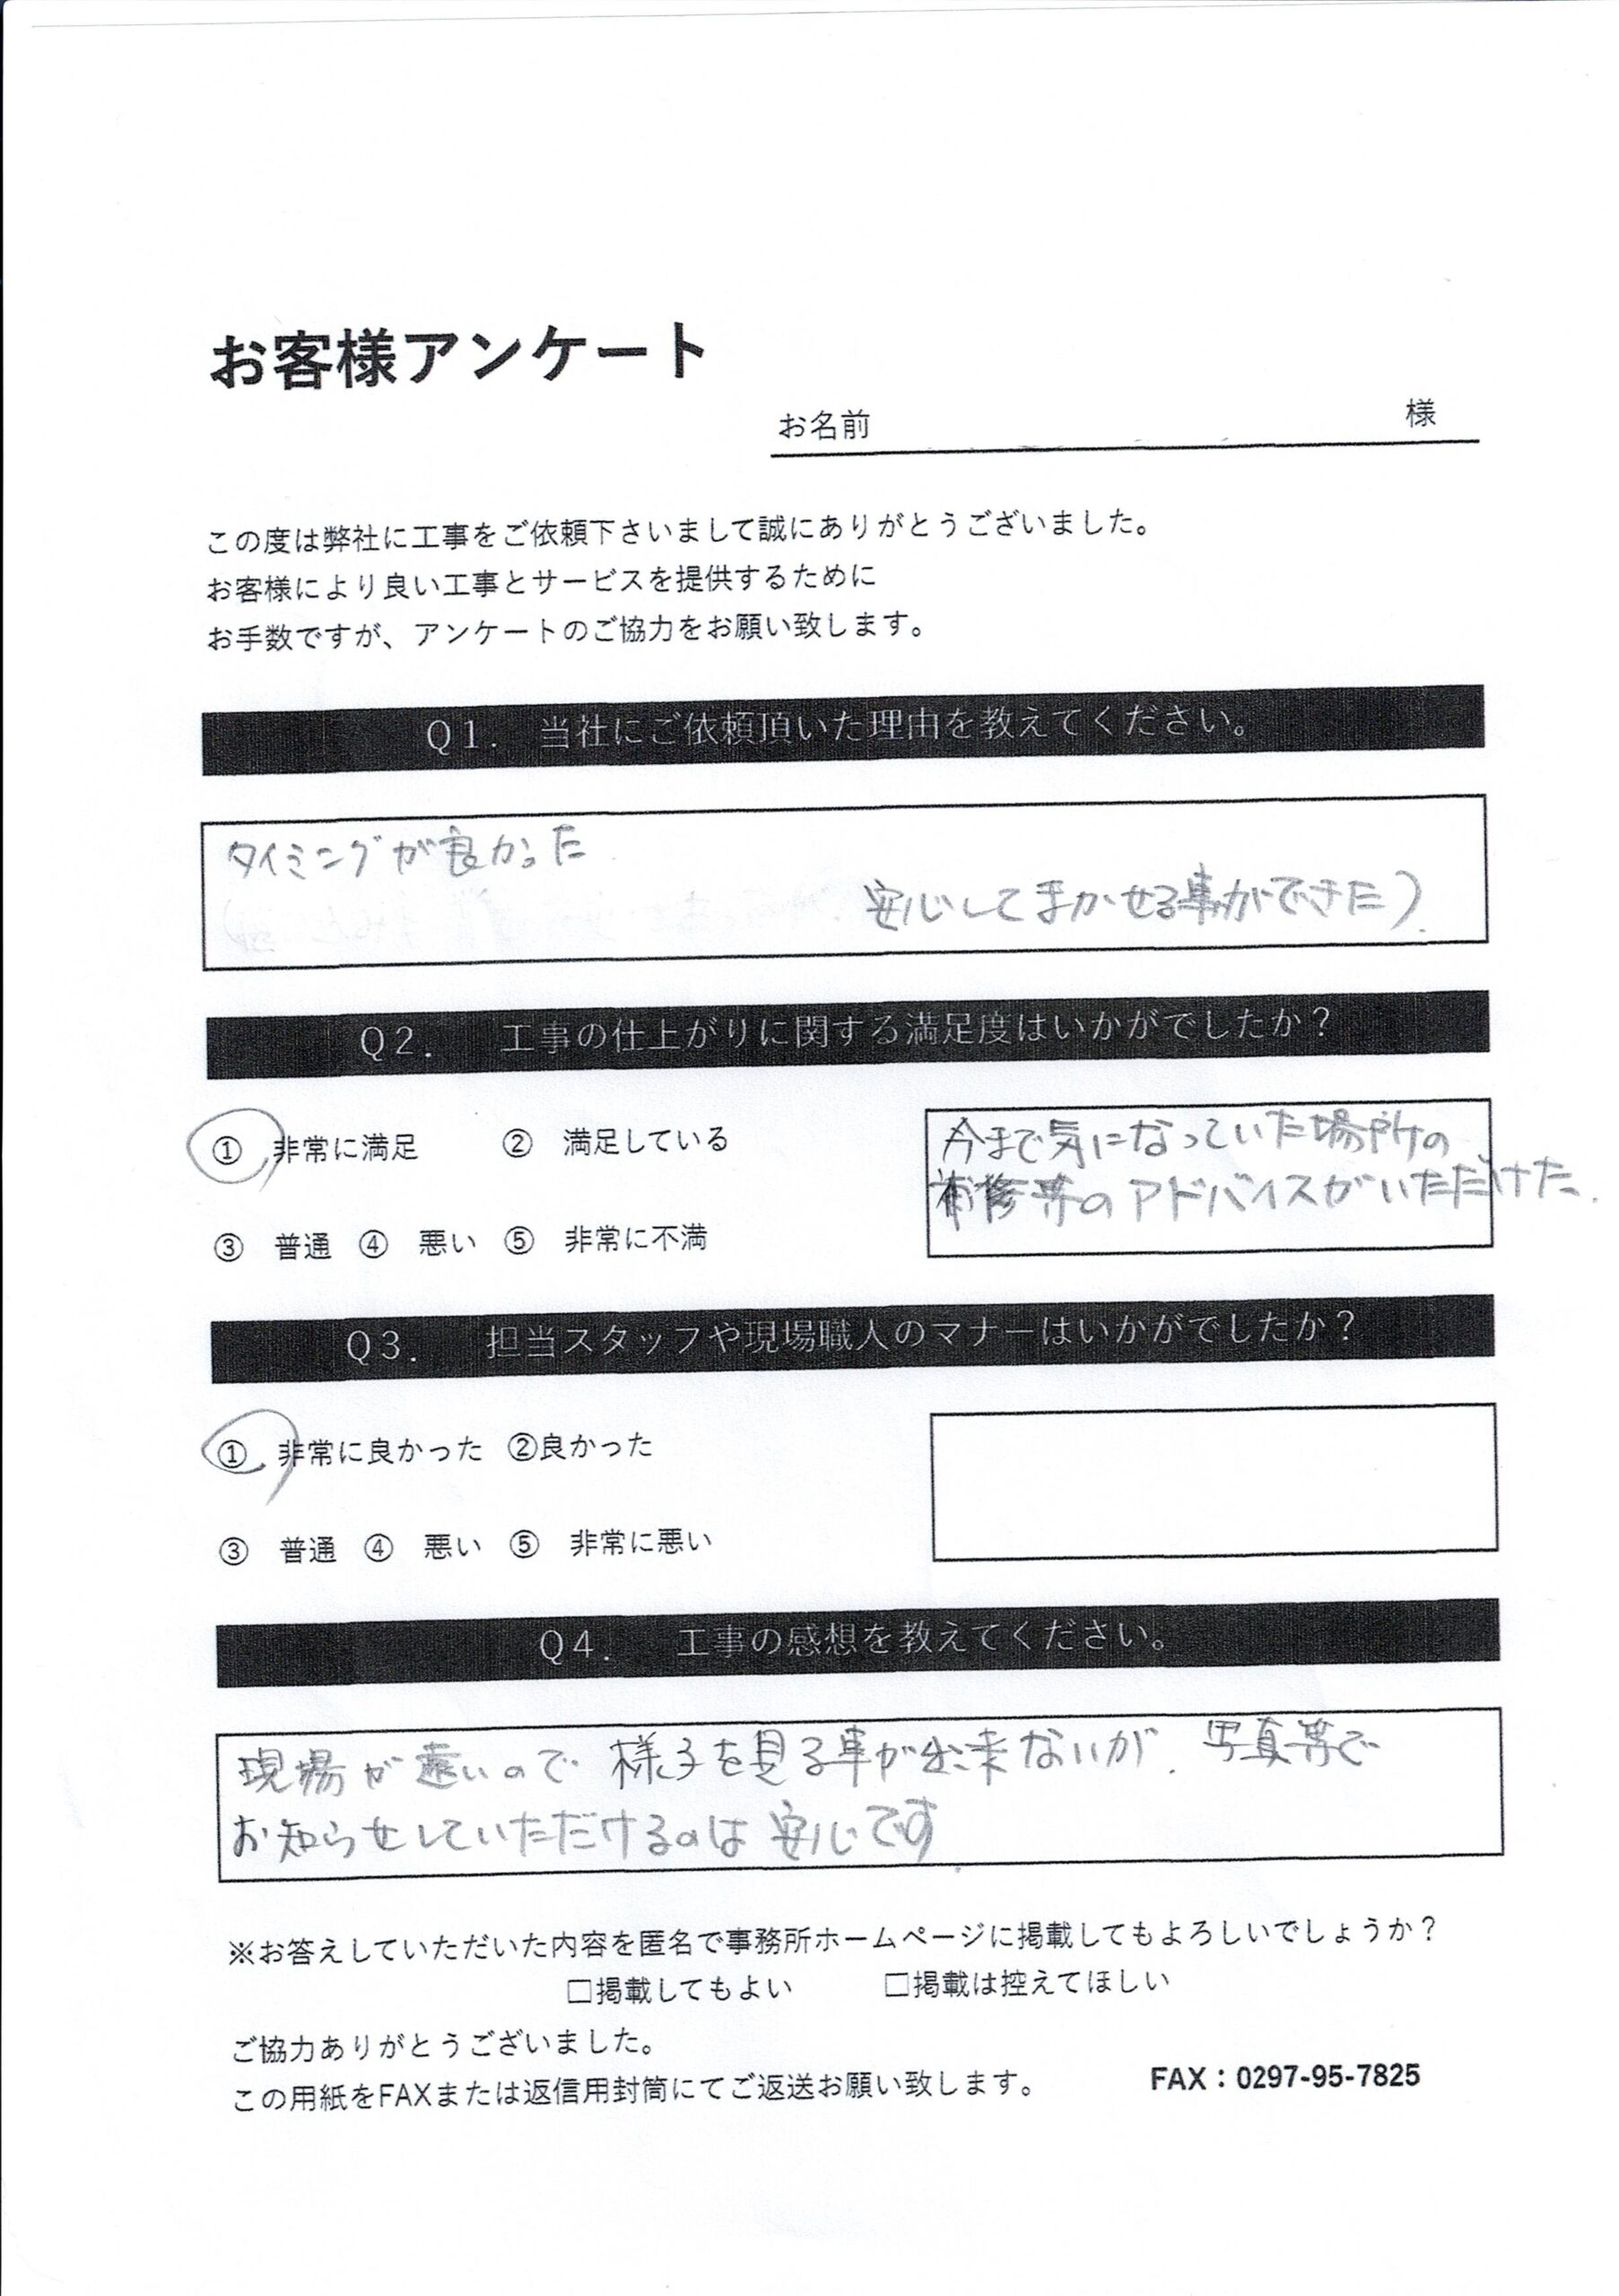 お客様アンケート
お名前 様
この度は弊社に工事をご依頼下さいまして誠にありがとうございました。
お客様により良い工事とサービスを提供するために
お手数ですが、アンケートのご協力をお願い致します。
Q1. 当社にご依頼頂いた理由を教えてください。
タイミングが良かった
安心してまかせる事ができた)
Q2. 工事の仕上がりに関する満足度はいかがでしたか？
① 非常に満足 ② 満足している
③ 普通 ④ 悪い ⑤ 非常に不満
今まで気になっていた場所の
補修等のアドバイスがいただけた。
Q3. 担当スタッフや現場職人のマナーはいかがでしたか？
① 非常に良かった ②良かった
③ 普通 ④ 悪い ⑤ 非常に悪い
Q4. 工事の感想を教えてください。
現場が遠いので 様子を見る事が出来ないが、写真等で
お知らせしていただけるのは 安心です
※お答えしていただいた内容を匿名で事務所ホームページに掲載してもよろしいでしょうか？
□掲載してもよい □掲載は控えてほしい
ご協力ありがとうございました。
この用紙をFAXまたは返信用封筒にてご返送お願い致します。 FAX：0297-95-7825